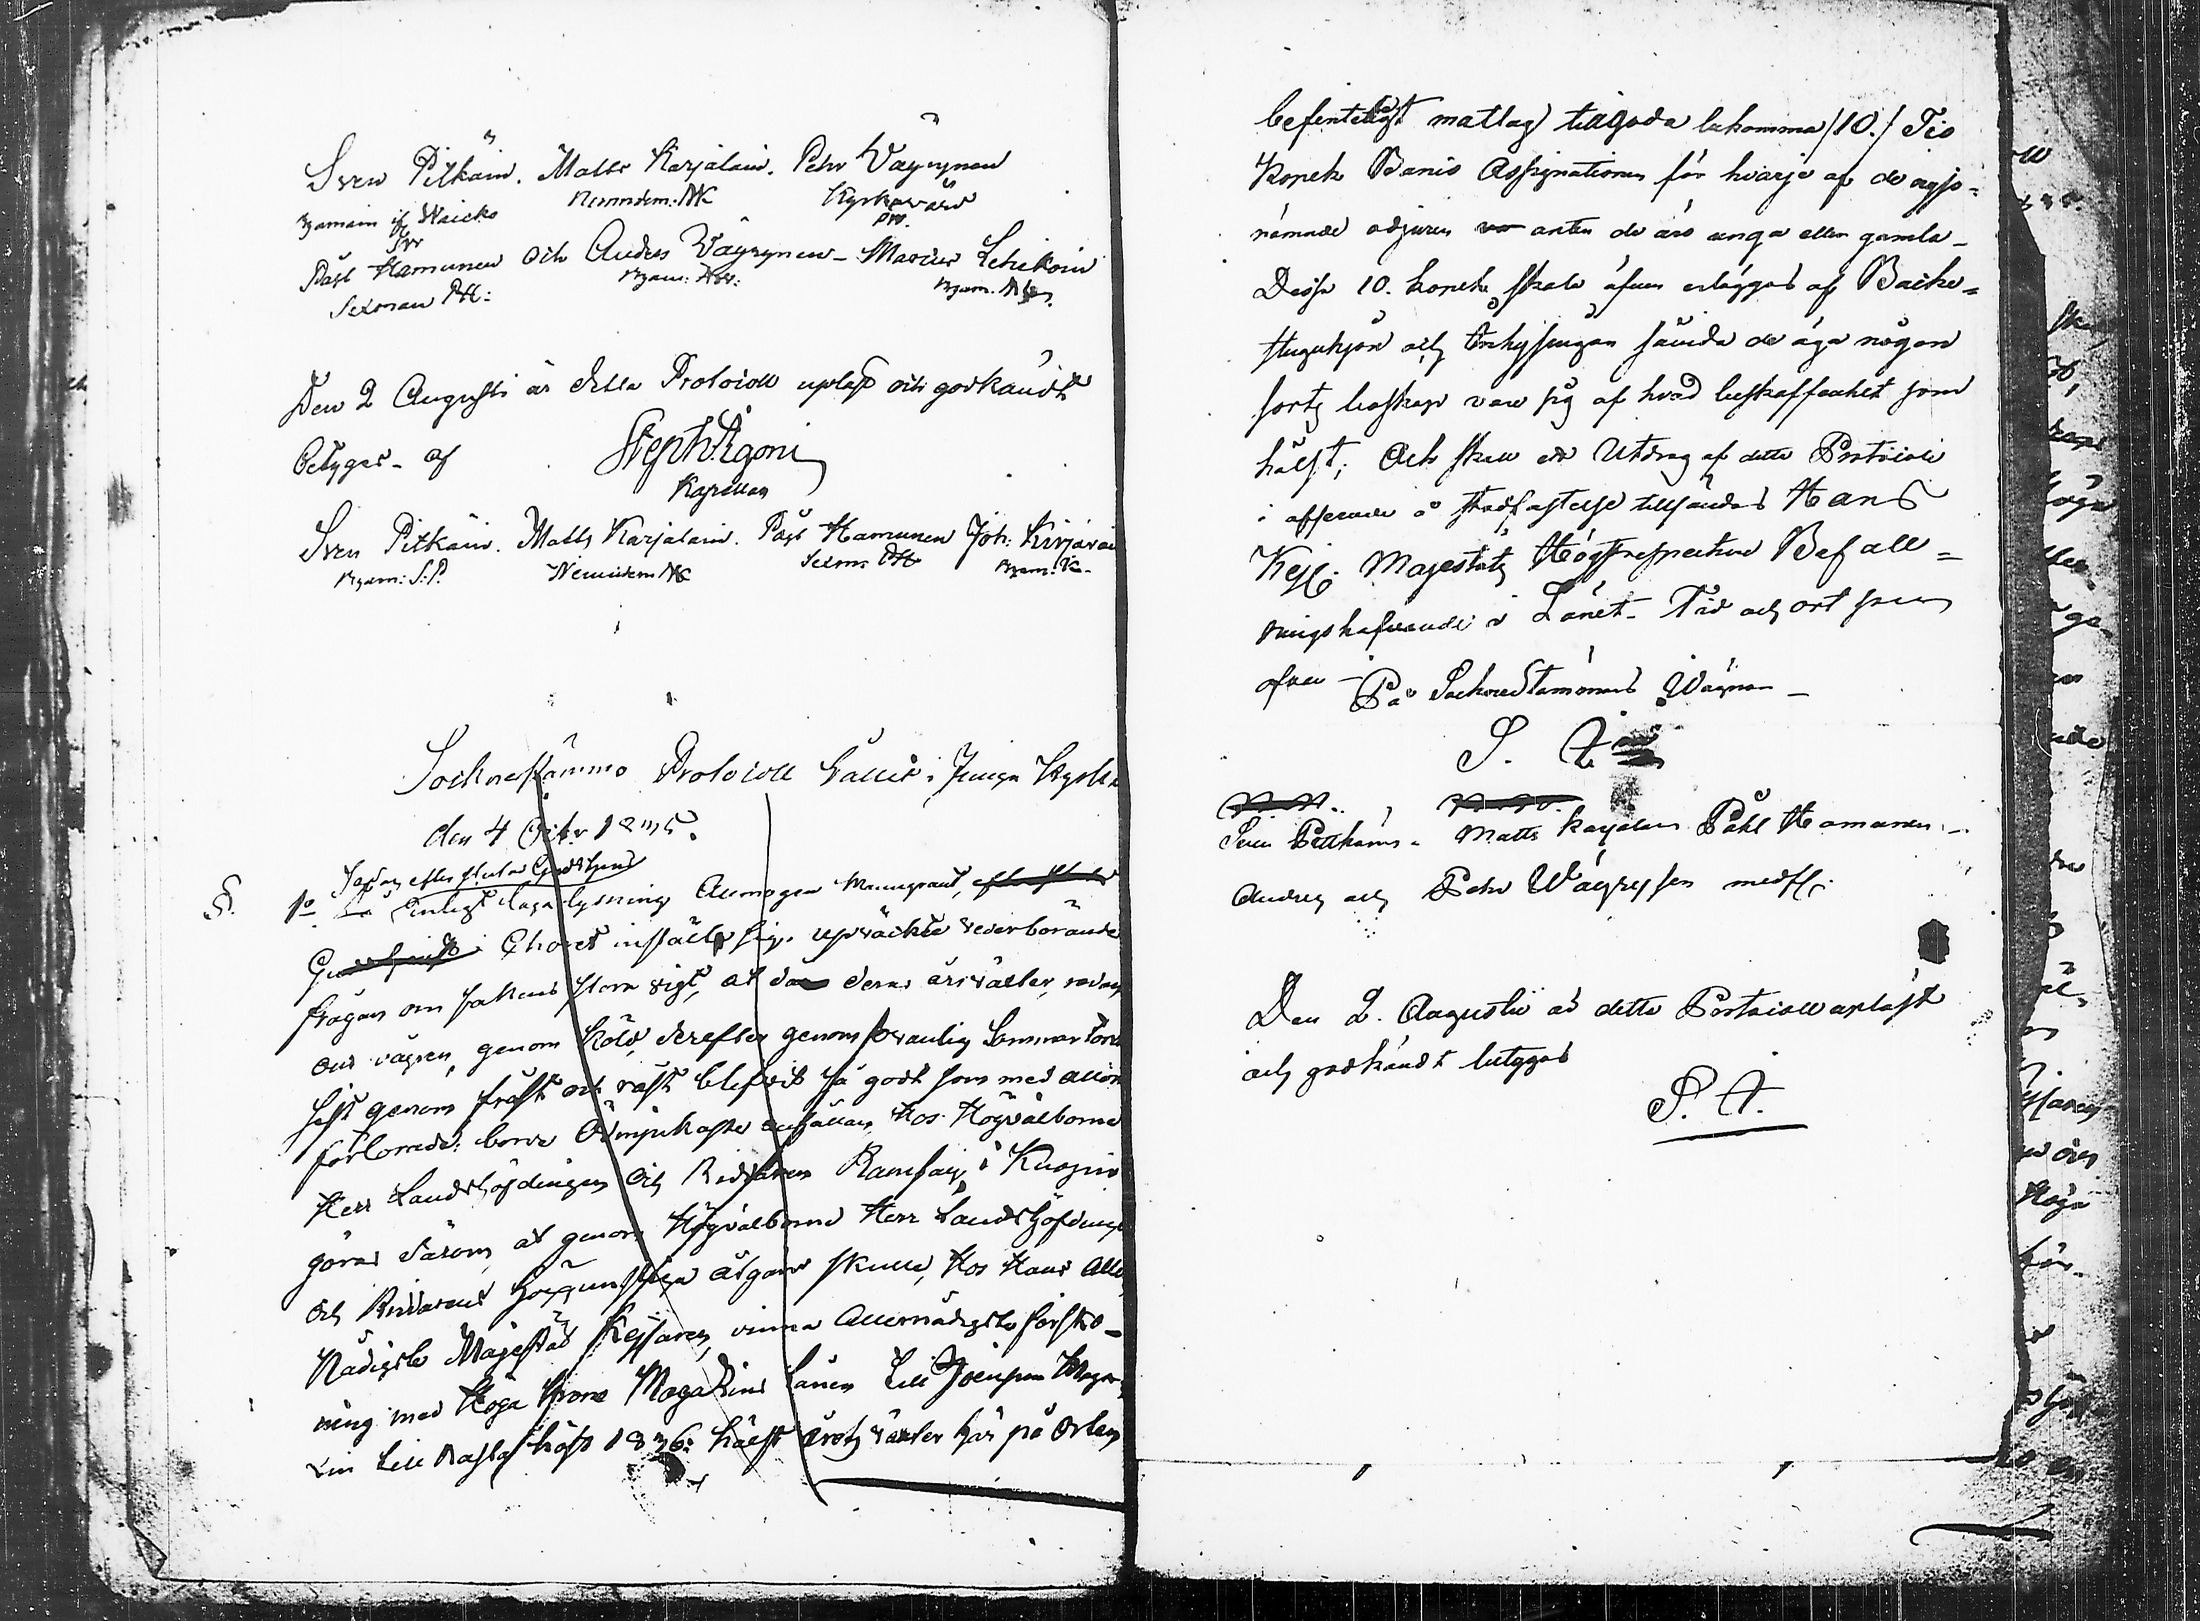 Sven Pitkäin. Matts Karjalain. Pehr Väyrynen
Nemndem: MK Kyrkovärd
PW.
Påhl Hämunen och Anders Väyrynen – Lehikoin
Sexman PH: Byam:
Den 2 Augusti är detta Protocoll upläst och godkändt
Betygas – af Steph: Agoni
Kapellan
Sven Pitkäin. Matts Karjalain. Påhl Hamunen Joh: Kirjavai
Byam: S: P. Nemndem MK Sexm PH Byam: K.
Sockne Stämmo Protocoll hållit i Kyrka
den 4 Octbr 1835.
Sedan efter slutad Gudstjenst
§. 1º Enligt laga lysning Allmogen Mangrant,
i Choret inställt sig, upväckte vederbörande
frågan om sakens stora vigt, at deras årsväxter, redan
om våren, genom köld, derefter genom Sommar torka
sist genom frost och röst blifvit så godt som med allo
förlorade: borde Ödmjukaste anhållan, Hos Högvälborne
Herr Landshöfdingen och Riddaren Ramsay i Kuopio
göras därom, at genom Högvälborne Herr Landshöfdinge
och Riddarens höggunstiga åtgärd skulle, Hos Hans Aller
Nådigste Majestät Kejsaren, vinna Allernådigste försko-
ning med Höga Krono Magazins Lånen till Joensuu Maga-
zin till nästa höst 1836: hälst årets växter här på Orten
befinteligt matlag tillgodo bekomma /10./ Tio
Kopek Banco Assignationer för hvarje af de
nämnde odjuren antin de äro unga eller gamla –
Dessa 10. kopek skola äfven erläggas af Backe=
stuguhjon och Inhysingar såvida de äga någon
sorts boskap vare sig af hvad beskaffenhet som
hälst; Och skall ett Utdrag af detta Protocoll
i afseende å stadfästelse tillsändas Hans
Kejs: Majestäts Högtrespective Befall=
ningshafvande i Länet. Tid och ort som
ofvan – På Sockne Stämmans Vägnar –
S. A
Sven Pittkäin. Matts Karjalain Påhl Hamunen –
Anders och Pehr Wäyrysen medfl:
Den 2. Augustii är detta Protocoll upläst
och godkändt betygas
S. A.